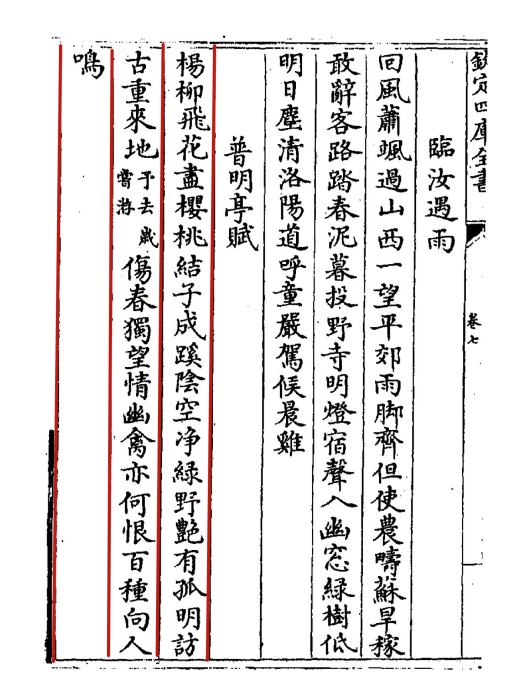 欽定四庫全書
卷七
臨汝遇雨
回風蕭颯過山西一望平郊雨脚齊但使農疇蘇旱稼
敢辭客路踏春泥暮投野寺明燈宿聲入幽窓緑樹低
明日塵清洛陽道呼童嚴駕候晨雞
普明亭賦
楊柳飛花盡櫻桃結子成蹊陰空净緑野艷有孤明訪
古重來地予去歲嘗游傷春獨望情幽禽亦何恨百種向人
鳴